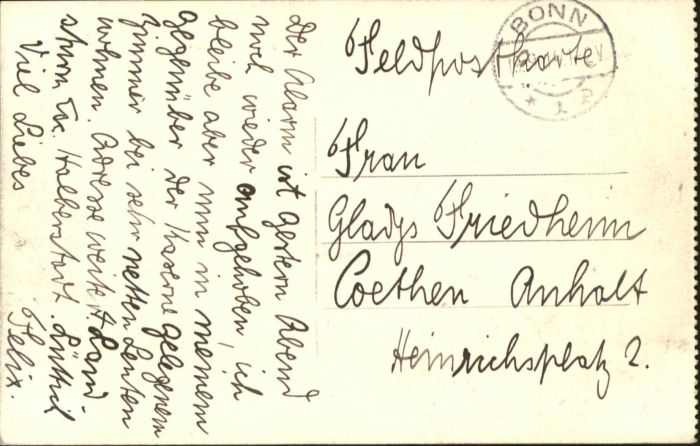 Der Alarm ist gestern Abend
noch wieder aufgehoben, ich
bleibe aber nun in meinem
gegenüber der Kaserne gelegenen
Zimmer bei sehr netten Leuten
wohnen. Adresse weiter Land
sturm Ers. Halberstadt.
Viel Liebes
Felix.
Feldpostkarte
BONN
* 1 P
Frau
Gladys Friedheim
Coethen Anhalt
Heinrichsplatz 2.